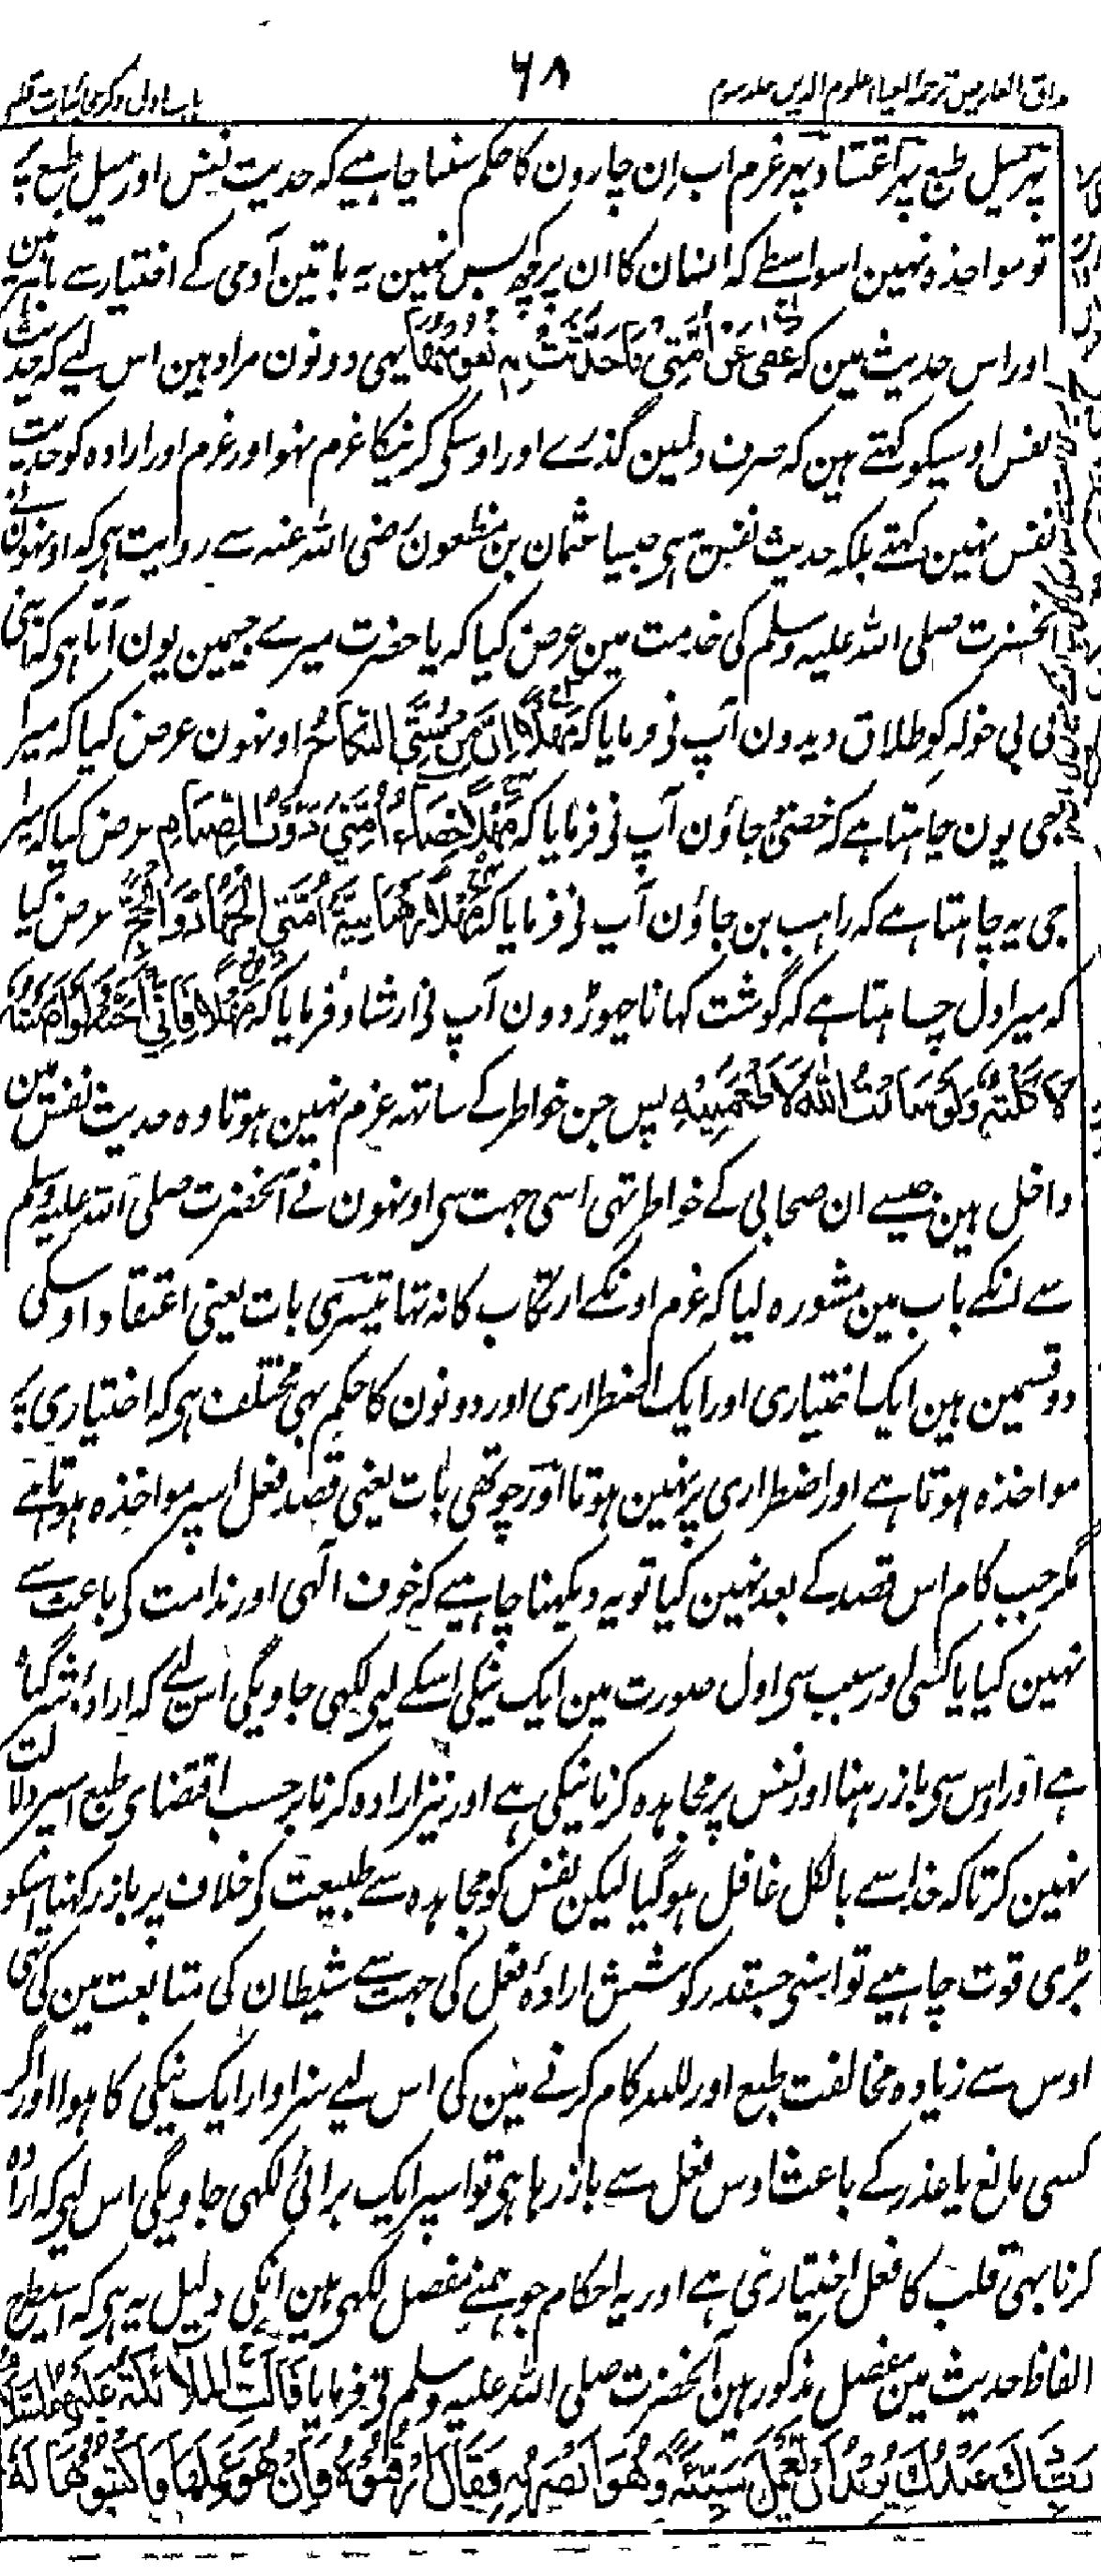 مذاق العارفین ترجمۂ احیاء علوم الدین جلد سوم ۶۸ باب اول ذکر عجائبات قلب
پہر میل طبع پہر اعتقاد پہر عزم اب ان چارون کا حکم سننا چاہیے کہ حدیث نفس اور میل طبع پر
تو مواخذہ نہین اسواسطے کہ انسان کا ان پر کچھ بس نہین یہ باتین آدمی کے اختیار سے باہر ہین
اور اس حدیث مین کہ عفی عن امتی ما حدثت به نفوسها یہی دونون مراد ہین اس لیے کہ حدیث
نفس اوسیکو کہتے ہین کہ صرف دلمین گذرے اور اوسکی کرنیکا عزم نہو اور عزم اور ارادہ کو حدیث
نفس نہین کہتے بلکہ حدیث نفس ہی جیسا عثمان بن مظعون رضی اللہ عنہ سے روایت ہی کہ اونہون نے
آنحضرت صلی اللہ علیہ وسلم کی خدمت مین عرض کیا کہ یا حضرت میرے جیمین یون آتا ہی کہ اپنی
بی بی خولہ کو طلاق دیدون آپ نی فرمایا کہ مَهْلًا اِنَّ مِنْ سُنَّتِی النِّکَاحُ اونہون عرض کیا کہ میرا
جی یون چاہتا ہے کہ خصی ہو جاؤن آپ نی فرمایا کہ مَهْلًا خِصَاءُ اُمَّتِی دُؤُبُ الصِّیَامِ عرض کیا کہ میرا
جی یہ چاہتا ہے کہ راہب بن جاؤن آپ نی فرمایا کہ مَهْلًا رَهْبَانِیَّةُ اُمَّتِی الْجِهَادُ وَالْحَجُّ عرض کیا
کہ میرا دل چاہتا ہے کہ گوشت کہانا چھوڑ دون آپ نی ارشاد فرمایا کہ مَهْلًا فَاِنِّی اُحِبُّهُ وَلَوْ اَصَبْتُهُ
لَاَکَلْتُهُ وَلَوْ سَاَلْتُ اللّٰهَ لَاَطْعَمَنِیْهِ پس جن خواطر کے ساتہہ عزم نہین ہوتا وہ حدیث نفس مین
داخل ہین جیسے ان صحابی کے خواطر تہی اسی جہت سی اونہون نے آنحضرت صلی اللہ علیہ وسلم
سے انکے باب مین مشورہ لیا کہ عزم اونکے ارتکاب کا نہ تہا تیسری بات یعنی اعتقاد اوسکی
دو قسمین ہین ایک اختیاری اور ایک اضطراری اور دونون کا حکم بہی مختلف ہی کہ اختیاری پر
مواخذہ ہوتا ہے اور اضطراری پر نہین ہوتا اور چوتھی بات یعنی قصد فعل اسپر مواخذہ ہوتا ہے
مگر جب کام اس قصد کے بعد نہین کیا تو یہ دیکہنا چاہیے کہ خوف الٰہی اور ندامت کی باعث سے
نہین کیا یا کسی اور سبب سی اول صورت مین ایک نیکی اسکے لیی لکہی جاویگی اس لیے کہ ارادہ گناہ
ہے اور اس سی باز رہنا اور نفس پر مجاہدہ کرنا نیکی ہے اور نیز ارادہ کرنا برحسب اقتضای طبع اسپر دلالت
نہین کرتا کہ خدا سے بالکل غافل ہو گیا لیکن نفس کو مجاہدہ سے طبیعت کی خلاف پر باز رکہنا اسکو
بڑی قوت چاہیے تو اسنی جسقدر کوشش ارادۂ فعل کی جہت سے شیطان کی متابعت مین کی تہی
اوس سے زیادہ مخالفت طبع اور للہ کام کرنے مین کی اس لیے سزاوار ایک نیکی کا ہوا اور اگر
کسی مانع یا عذر کے باعث اوس فعل سے باز رہا ہی تو اسپر ایک برائی لکہی جاویگی اس لیی کہ ارادہ
کرنا بہی قلب کا فعل اختیاری ہے اور یہ احکام جو ہمنے مفصل لکہی ہین انکی دلیل یہ ہی کہ اسیطرح
الفاظ حدیث مین مفصل مذکور ہین آنحضرت صلی اللہ علیہ وسلم نی فرمایا قَالَتِ الْمَلَائِکَةُ عَلَیْهِمُ السَّلَامُ
رَبِّ ذَاکَ عَبْدُکَ یُرِیْدُ اَنْ یَعْمَلَ سَیِّئَةً وَهُوَ اَبْصَرُ بِهِ فَقَالَ ارْقُبُوْهُ فَاِنْ هُوَ عَمِلَهَا فَاکْتُبُوْهَا لَهُ